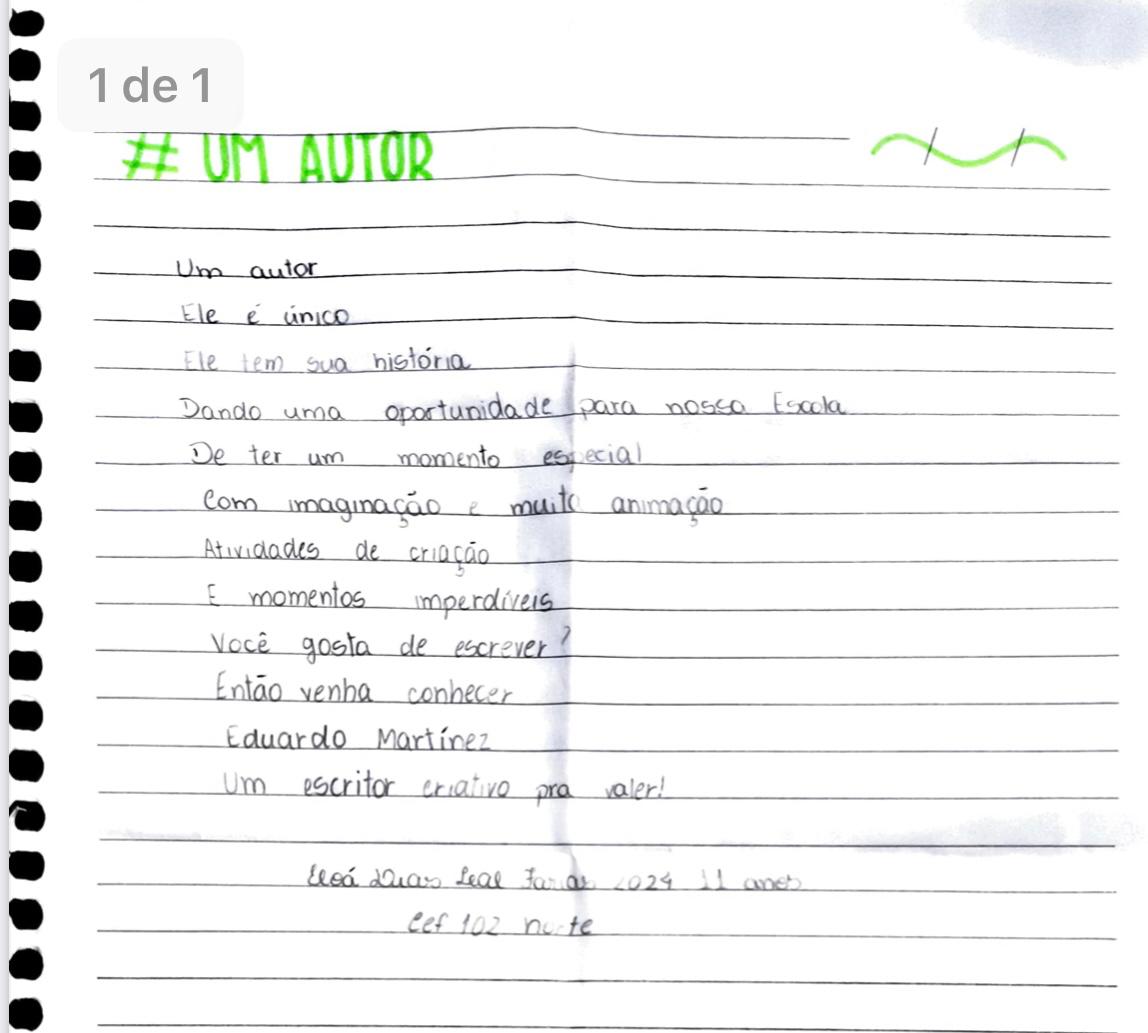 1 de 1
# UM AUTOR
Um autor
Ele é único
Ele tem sua história
Dando uma oportunidade para nossa Escola
De ter um momento especial
Com imaginação e muita animação
Atividades de criação
E momentos imperdíveis
Você gosta de escrever?
Então venha conhecer
Eduardo Martínez
Um escritor criativo pra valer!
Leal Farias 2024 11 anos
Cef 102 norte